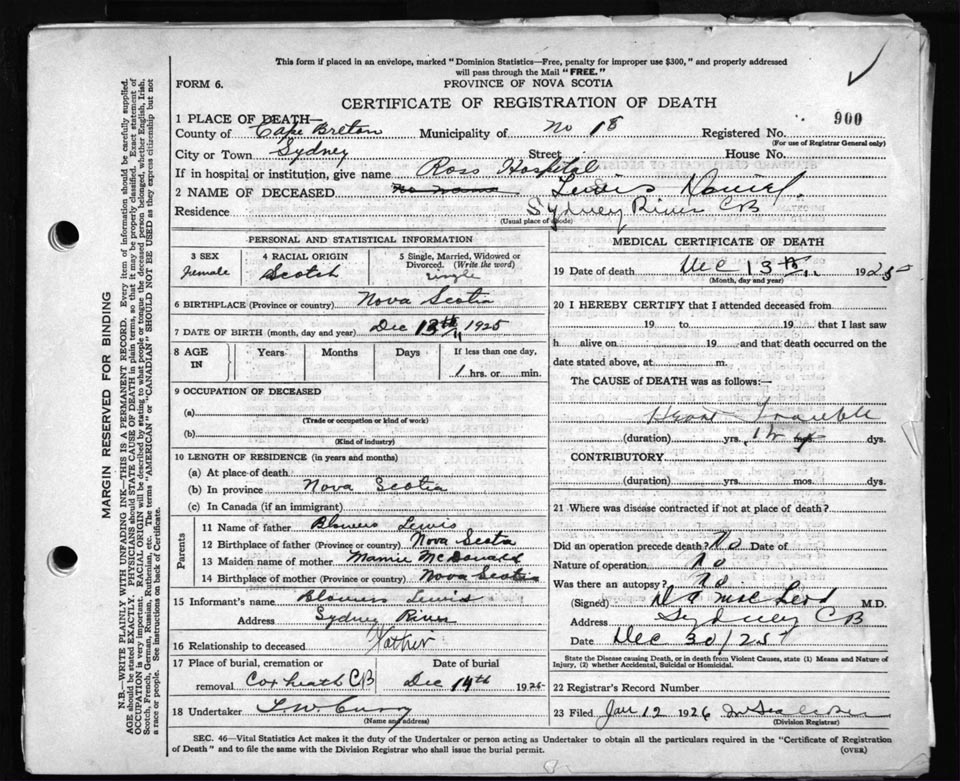 This form if placed in an envelope, marked "Dominion Statistics—Free, penalty for improper use $300," and properly addressed
will pass through the Mail "FREE."
FORM 6.
PROVINCE OF NOVA SCOTIA
CERTIFICATE OF REGISTRATION OF DEATH
1 PLACE OF DEATH—
County of Cape Breton Municipality of No 18 Registered No. 900
(For use of Registrar General only)
City or Town Sydney Street House No.
If in hospital or institution, give name Ross Hospital
2 NAME OF DECEASED Lewis
Residence Sydney River CB
(Usual place of abode)
PERSONAL AND STATISTICAL INFORMATION
3 SEX
female
4 RACIAL ORIGIN
Scotch
5 Single, Married, Widowed or
Divorced. (Write the word)
single
6 BIRTHPLACE (Province or country) Nova Scotia
7 DATE OF BIRTH (month, day and year) Dec 13th 1925
8 AGE
IN
Years Months Days If less than one day,
1 hrs. or min.
9 OCCUPATION OF DECEASED
(a)
(Trade or occupation or kind of work)
(b)
(Kind of industry)
10 LENGTH OF RESIDENCE (in years and months)
(a) At place of death
(b) In province Nova Scotia
(c) In Canada (if an immigrant)
Parents
11 Name of father Blowers Lewis
12 Birthplace of father (Province or country) Nova Scotia
13 Maiden name of mother Mamie McDonald
14 Birthplace of mother (Province or country) Nova Scotia
15 Informant's name Blowers Lewis
Address Sydney River
16 Relationship to deceased Father
17 Place of burial, cremation or Date of burial
removal Coxheath CB Dec 14th 1925
18 Undertaker L.W. Curry
(Name and address)
MEDICAL CERTIFICATE OF DEATH
19 Date of death Dec 13th 1925
(Month, day and year)
20 I HEREBY CERTIFY that I attended deceased from
19 to 19 that I last saw
h alive on 19 and that death occurred on the
date stated above, at m.
The CAUSE of DEATH was as follows:—
Heart Trouble
(duration) yrs. 1 hr dys.
CONTRIBUTORY
(duration) yrs. mos. dys.
21 Where was disease contracted if not at place of death?
Did an operation precede death? No Date of
Nature of operation No
Was there an autopsy? No
(Signed) Mac Leod M.D.
Address Sydney CB
Date Dec 30/25
State the Disease causing Death, or in death from Violent Causes, state (1) Means and Nature of
Injury, (2) whether Accidental, Suicidal or Homicidal.
22 Registrar's Record Number
23 Filed Jan 12 1926
(Division Registrar)
SEC. 46—Vital Statistics Act makes it the duty of the Undertaker or person acting as Undertaker to obtain all the particulars required in the "Certificate of Registration
of Death" and to file the same with the Division Registrar who shall issue the burial permit. (OVER)
MARGIN RESERVED FOR BINDING
N.B.—WRITE PLAINLY WITH UNFADING INK—THIS IS A PERMANENT RECORD. Every item of information should be carefully supplied.
AGE should be stated EXACTLY. PHYSICIANS should STATE CAUSE OF DEATH in plain terms, so that it may be properly classified. Exact statement of
OCCUPATION is very important. RACIAL ORIGIN will be described by stating to what people or tongue the deceased person belonged, whether English, Irish,
Scotch, French, German, Russian, Ruthenian, etc. The terms "AMERICAN" or "CANADIAN" SHOULD NOT BE USED as they express citizenship but not
a race or people. See instructions on back of Certificate.